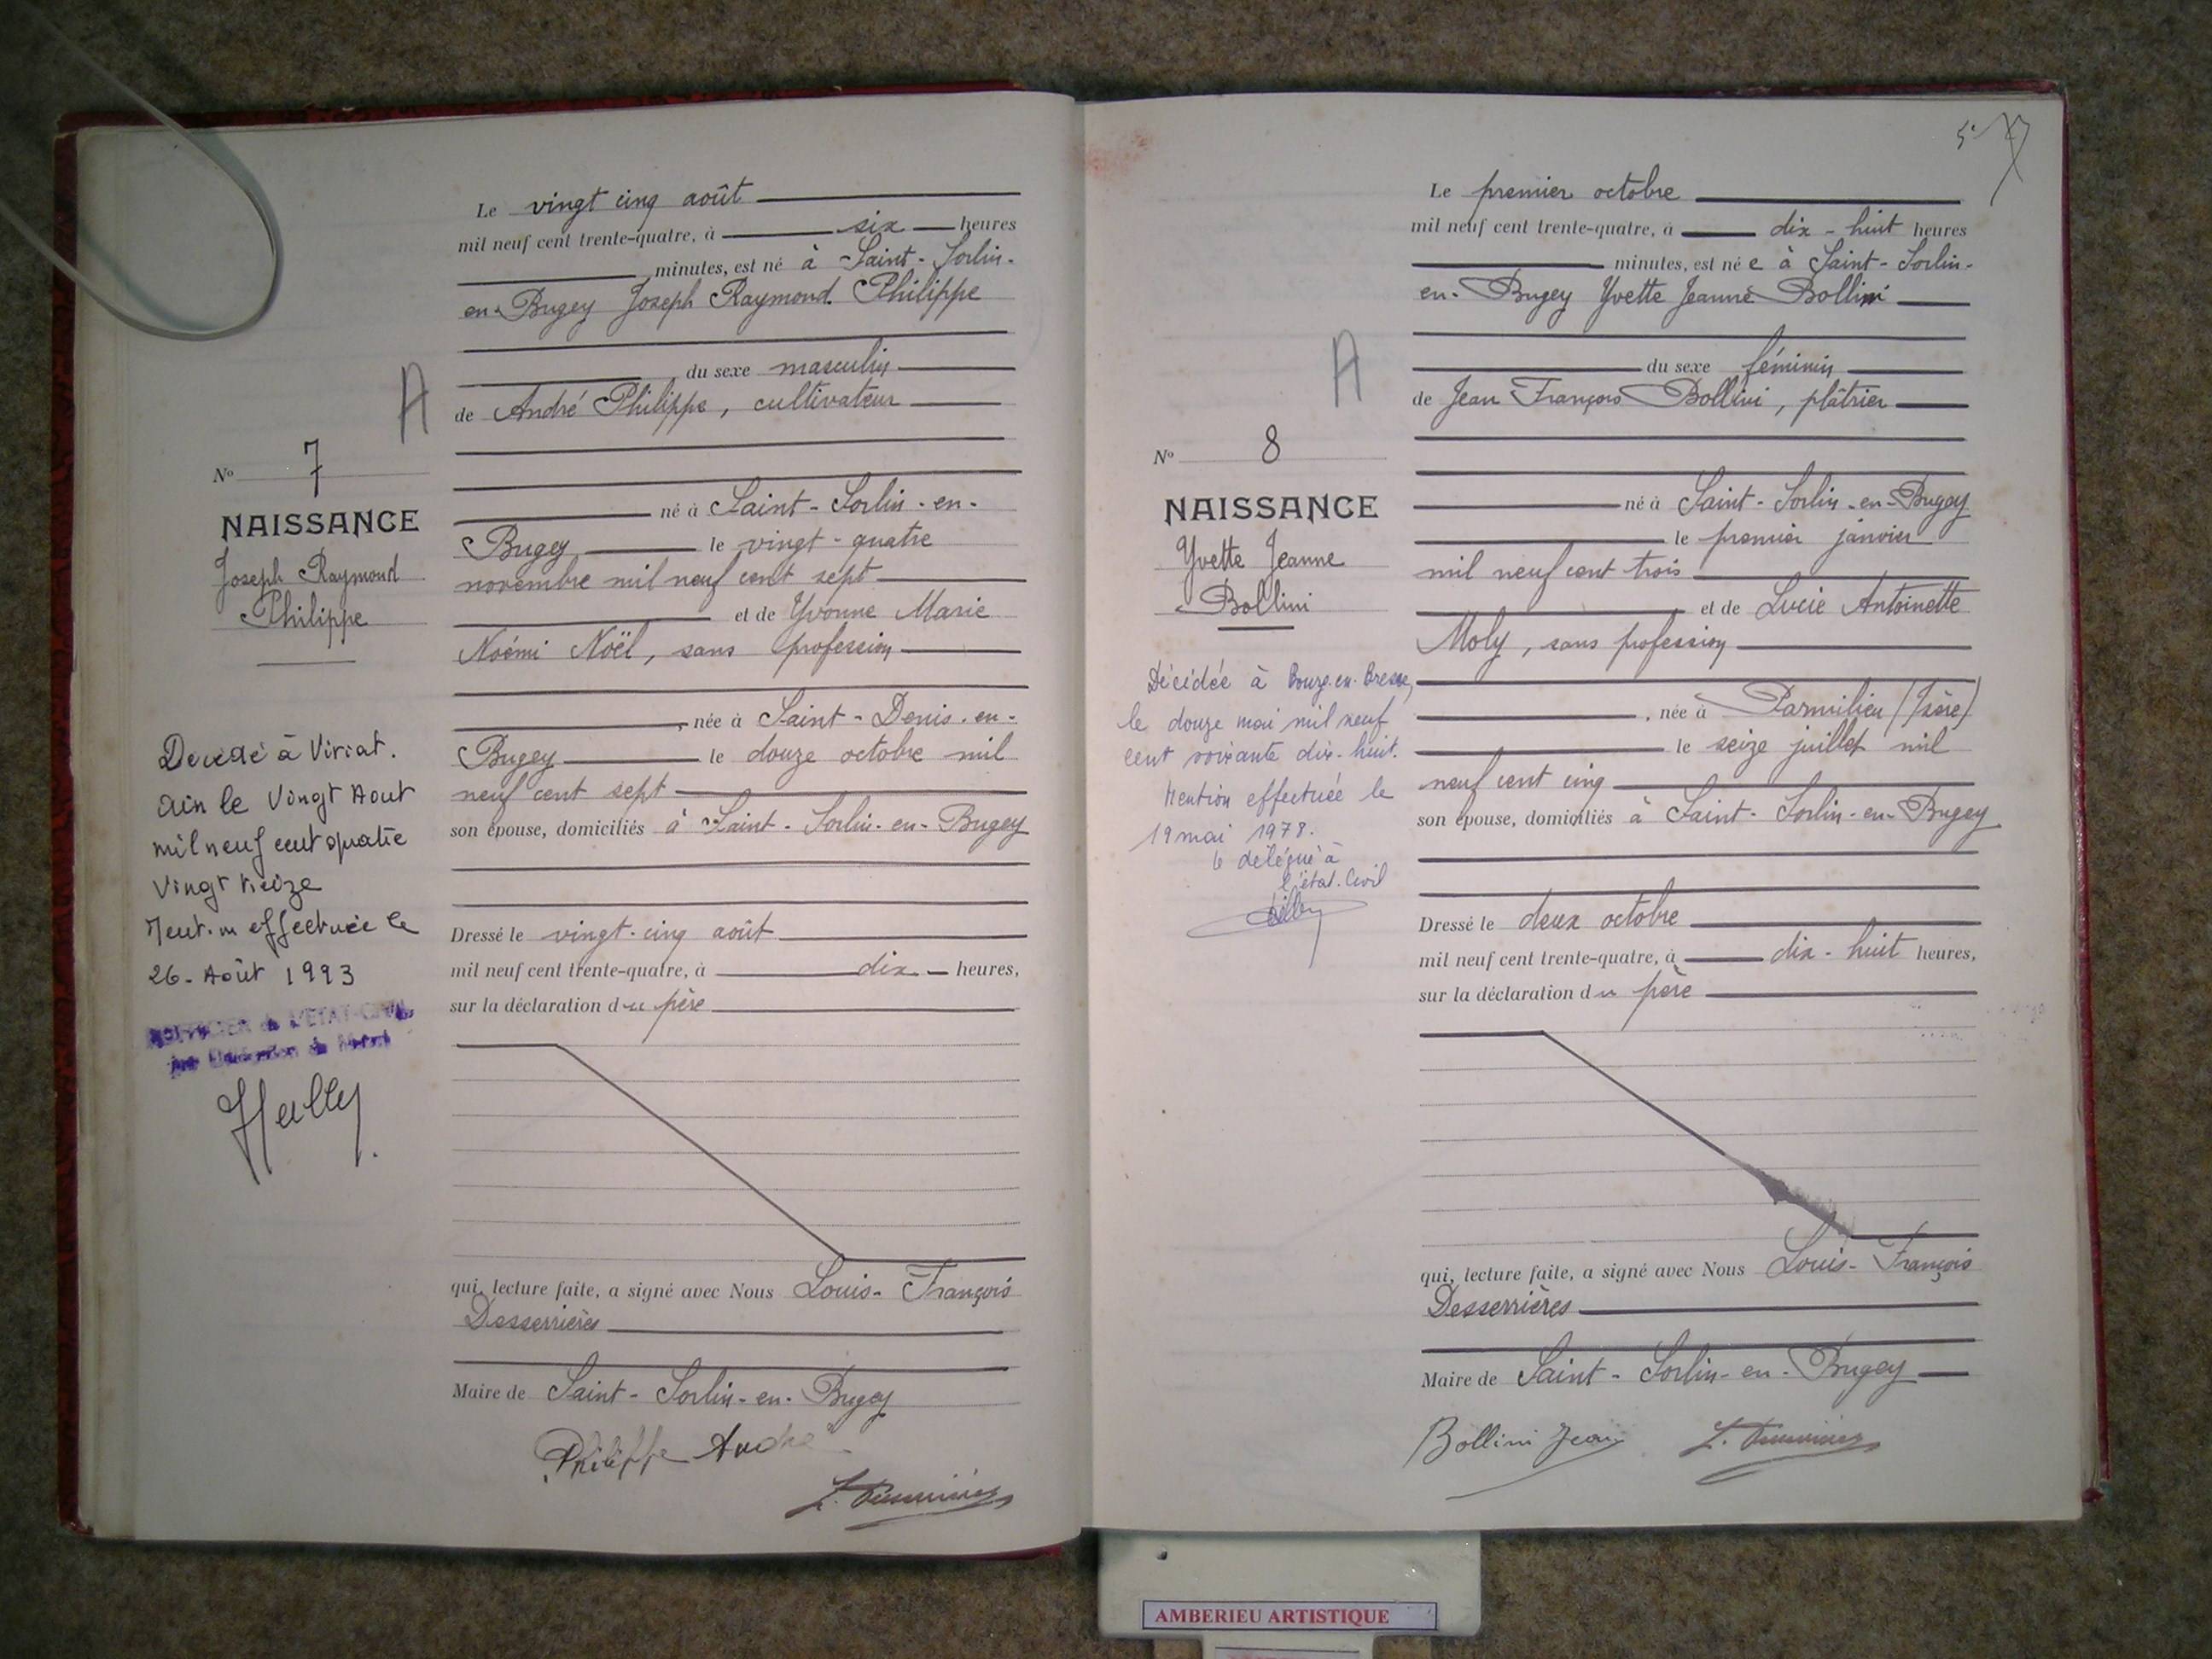 Le vingt cinq août
mil neuf cent trente-quatre, à six heures
minutes, est né à Saint-Sorlin-
en-Bugey Joseph Raymond Philippe
du sexe masculin
A
de André Philippe, cultivateur
No 7
NAISSANCE
Joseph Raymond
Philippe
né à Saint-Sorlin-en-
Bugey le vingt-quatre
novembre mil neuf cent sept
et de Yvonne Marie
Noémi Noël, sans profession
, née à Saint-Denis-en-
Bugey le douze octobre mil
neuf cent sept
son épouse, domiciliés à Saint-Sorlin-en-Bugey
Decedé à Viriat.
Ain le Vingt Aout
mil neuf cent quatre
Vingt treize
Ment.on effectuée le
26-Août 1993
OFFICIER de L'ETAT-CIVIL
par
Dressé le vingt-cinq août
mil neuf cent trente-quatre, à dix heures,
sur la déclaration du père
qui, lecture faite, a signé avec Nous Louis-François
Desserrières
Maire de Saint-Sorlin-en-Bugey
Philippe André
5e
Le premier octobre
mil neuf cent trente-quatre, à dix-huit heures
minutes, est née à Saint-Sorlin-
en-Bugey Yvette Jeanne Bollini
du sexe féminin
A
de Jean François Bollini, plâtrier
No 8
NAISSANCE
Yvette Jeanne
Bollini
né à Saint-Sorlin-en-Bugey
le premier janvier
mil neuf cent trois
et de Lucie Antoinette
Moly, sans profession
, née à Parmilieu (Isère)
le seize juillet mil
neuf cent cinq
son épouse, domiciliés à Saint-Sorlin-en-Bugey
Décédée à Bourg-en-Bresse,
le douze mai mil neuf
cent soixante dix-huit.
Mention effectuée le
19 mai 1978.
le délégué à
l'état-Civil
Dressé le deux octobre
mil neuf cent trente-quatre, à dix-huit heures,
sur la déclaration du père
qui, lecture faite, a signé avec Nous Louis-François
Desserrières
Maire de Saint-Sorlin-en-Bugey
Bollini Jean L. Desserrières
AMBERIEU ARTISTIQUE